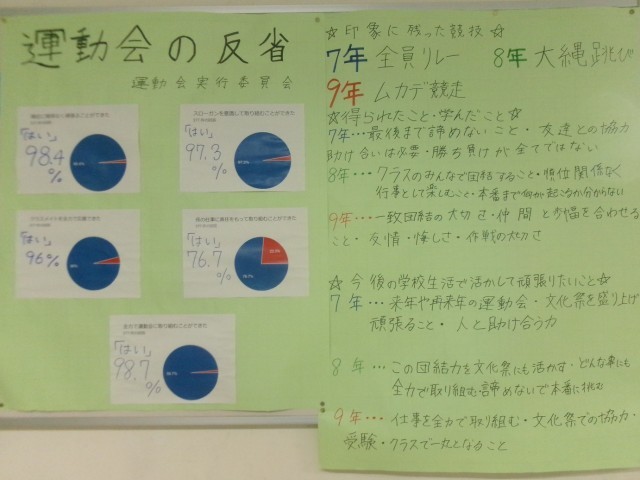 運動会の反省
運動会実行委員会
「はい」
98.4
%
スローガンを意識して取り組むことができた
「はい」
97.3
%
クラスメイトを全力で応援できた
「はい」
96%
係の仕事に責任をもって取り組むことができた
「はい」
76.7
%
全力で運動会に取り組むことができた
「はい」
98.7
%
☆印象に残った競技☆
7年 全員リレー 8年 大縄跳び
9年 ムカデ競走
☆得られたこと・学んだこと☆
7年…最後まで諦めないこと・友達との協力
助け合いは必要・勝ち負けが全てではない
8年…クラスのみんなで団結すること・順位関係なく
行事として楽しむこと・本番まで何が起こるか分からない
9年…一致団結の大切さ・仲間と歩幅を合わせる
こと・友情・悔しさ・作戦の大切さ
☆今後の学校生活で活かして頑張りたいこと☆
7年…来年や再来年の運動会・文化祭を盛り上げ
頑張ること・人と助け合う力
8年…この団結力を文化祭にも活かす・どんな事にも
全力で取り組む諦めないで本番に挑む
9年…仕事を全力で取り組む・文化祭での協力・
受験・クラスで一丸となること